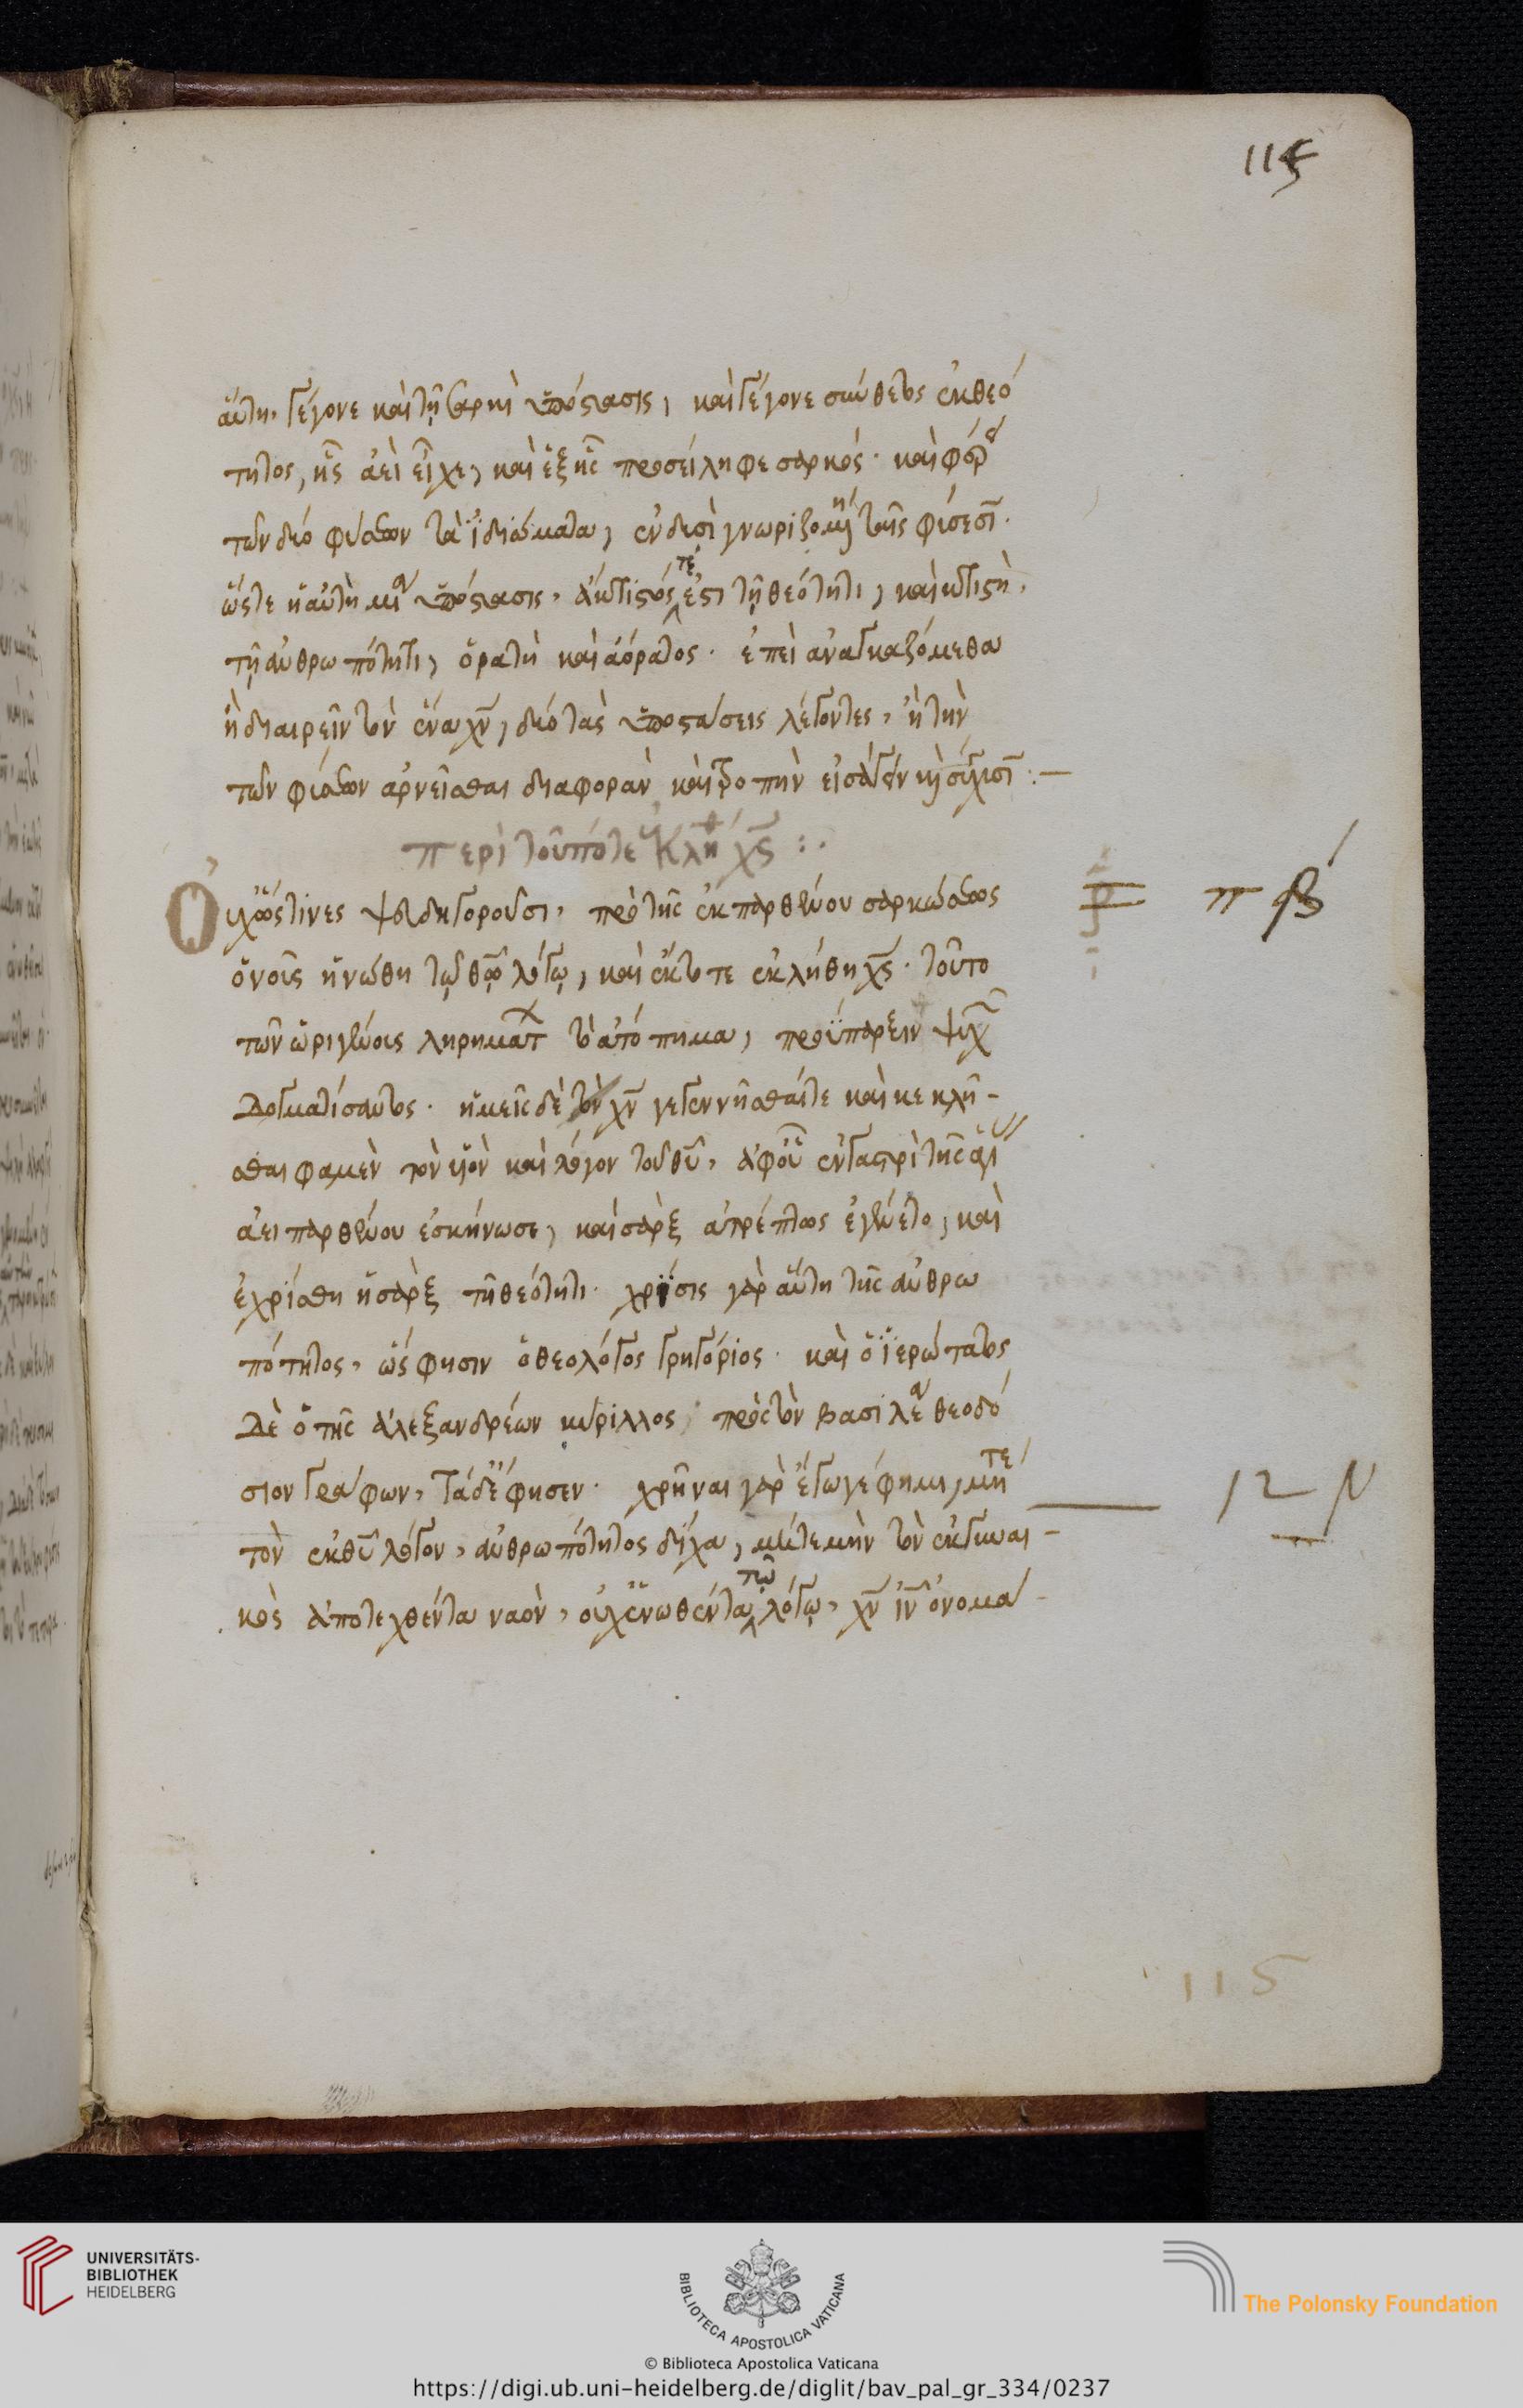 115
αὕτη, γέγονε καὶ τῇ σαρκὶ ὑπόστασις, καὶ γέγονε σύνθετος ἐκ θεό
τητος, ἧς ἀεὶ εἶχε, καὶ ἐξ ἧς προσείληφε σαρκός· καὶ φέρει
τῶν δύο φύσεων τὰ ἰδιώματα, ἐν δυσὶ γνωριζομένη ταῖς φύσεσι·
ὥστε ἡ αὐτὴ μία ὑπόστασις, ἄκτιστός τέ ἐστι τῇ θεότητι, καὶ κτιστὴ,
τῇ ἀνθρωπότητι, ὁρατὴ καὶ ἀόρατος· ἐπεὶ ἀναγκαζόμεθα
ἢ διαιρεῖν τὸν ἕνα χν, δύο τὰς ὑποστάσεις λέγοντες, ἢ τὴν
τῶν φύσεων ἀρνεῖσθαι διαφορὰν καὶ τροπὴν εἰσάγειν καὶ σύγχυσιν :—
περὶ τοῦ πότε ἐκλήθη χς :·
Οὐχ ὥς τινες ψευδηγοροῦσι, πρὸ τῆς ἐκ παρθένου σαρκώσεως
ὁ νοῦς ἡνώθη τῷ θῷ λόγῳ, καὶ ἐκ τότε ἐκλήθη χς· τοῦτο
τῶν ὠριγένους ληρημάτων τὸ ἀτόπημα, προΰπαρξιν ψυχῶν
δογματίσαντος· ἡμεῖς δὲ τὸν χν γεγεννῆσθαί τε καὶ κεκλῆ-
σθαι φαμὲν τὸν υἱὸν καὶ λόγον τοῦ θυ, ἀφ' οὗ ἐν γαστρὶ τῆς ἁγίας
ἀειπαρθένου ἐσκήνωσε, καὶ σὰρξ ἀτρέπτως ἐγένετο, καὶ
ἐχρίσθη ἡ σὰρξ τῇ θεότητι· χρίσις γὰρ αὕτη τῆς ἀνθρω
πότητος, ὥς φησιν ὁ θεολόγος γρηγόριος· καὶ ὁ ἱερώτατος
δὲ ὁ τῆς ἀλεξανδρέων κύριλλος, πρὸς τὸν βασιλέα θεοδό
σιον γράφων, τάδε ἔφησεν· χρῆναι γὰρ ἔγωγέ φημι, μήτε
τὸν ἐκ θυ λόγον, ἀνθρωπότητος δίχα, μήτε μὴν τὸν ἐκ γυναι-
κὸς ἀποτεχθέντα ναὸν, οὐχ ἑνωθέντα τῷ λόγῳ, χν ιν ὀνομά-
πβ
12 N
115
UNIVERSITÄTS-
BIBLIOTHEK
HEIDELBERG
BIBLIOTECA APOSTOLICA VATICANA
The Polonsky Foundation
© Biblioteca Apostolica Vaticana
https://digi.ub.uni-heidelberg.de/diglit/bav_pal_gr_334/0237